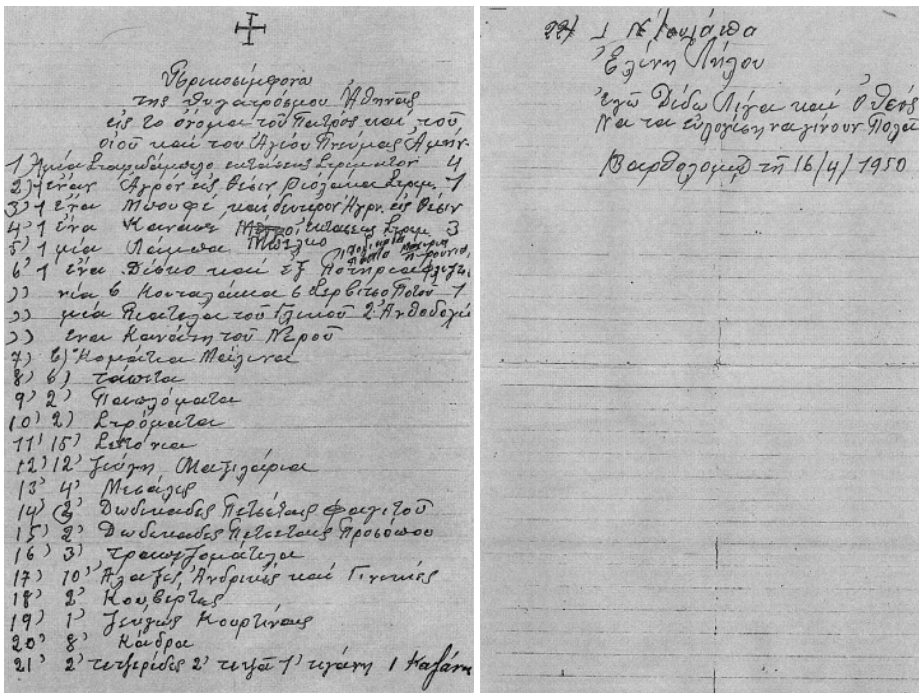 Πρικοσίμφονα
της Θυγατρόσμου Ἀθηνᾶς
εἰς το ὄνομα τοῦ Πατρός καί τοῦ
οἱοῦ καί τοῦ Ἁγίου Πνεύμας Ἀμήν
1) μία Σταφιδάμπελο εκτάσεως Στρεμάτον 4
2) 1 ἕναν Ἀγρόν εἰς θέσιν Στρεμ. 1
3) 1 ἕνα Μπουφέ καί δεύτερον Ἀγρ. εἰς θέσιν
4) 1 ἕνα Καναπέ ἐκτάσεως Στρεμ. 3
5) 1 μία Λάμπα
6) 1 ἕνα Δίσκο καί ἕξ Ποτήρια
)) νία 6 Κουταλάκια 6 Σερβίτσο Ποτοῦ 1
)) μία Πιατέλα τοῦ Γλικοῦ 2 Ἀνθοδοχεία
)) ενα Κανάτη τοῦ Νεροῦ
7) 6) Κομάτια Μάλινα
8) 6) τάπιτα
9) 2) Παπλόματα
10) 2) Στρόματα
11) 15) Σεντόνια
12) 12) ζεύγη Μαξιλάρια
13) 4) Μεσάλες
14) 2) Δωδεκάδες Πετσέτας φαγιτοῦ
15) 2) Δωδεκάδες Πετσετας Προσόπου
16) 3) τραπεζομάτιλα
17) 10) Ἀλαξές Ἀνδρικές καί Γινεκιές
18) 2) Κουβέρτες
19) 1) ζεύγος Κουρτίνας
20) 8) Κάδρα
21) 2) τετζερίδες 2) τετζᾶ 1) τιγάνη 1 Καζάνη
22) 1 Ντουλάπα
Ἑλένη Λήλου
ἐγώ Δίδω Λίγα καί ὁ Θεός
Να τα εὐλογίση να γίνουν Πολά
Βαρθολομιό τῆ 16/4/1950